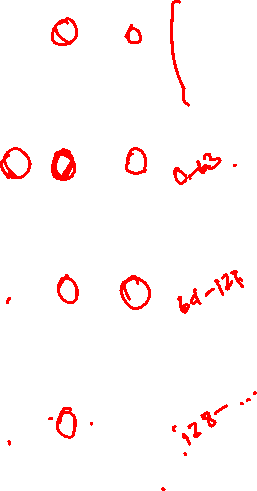 0 0
0 0 0 0-63
0 0 64-127
0 128-...